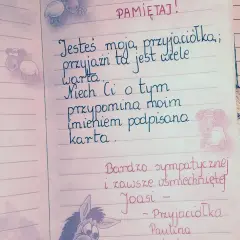 PAMIĘTAJ!
Jesteś moją przyjaciółką,
przyjaźń to jest wiele
warta.
Niech Ci o tym
przypomina moim
imieniem podpisana
karta.
Bardzo sympatycznej
i zawsze uśmiechniętej
Joasi -
- Przyjaciółka
Paulina